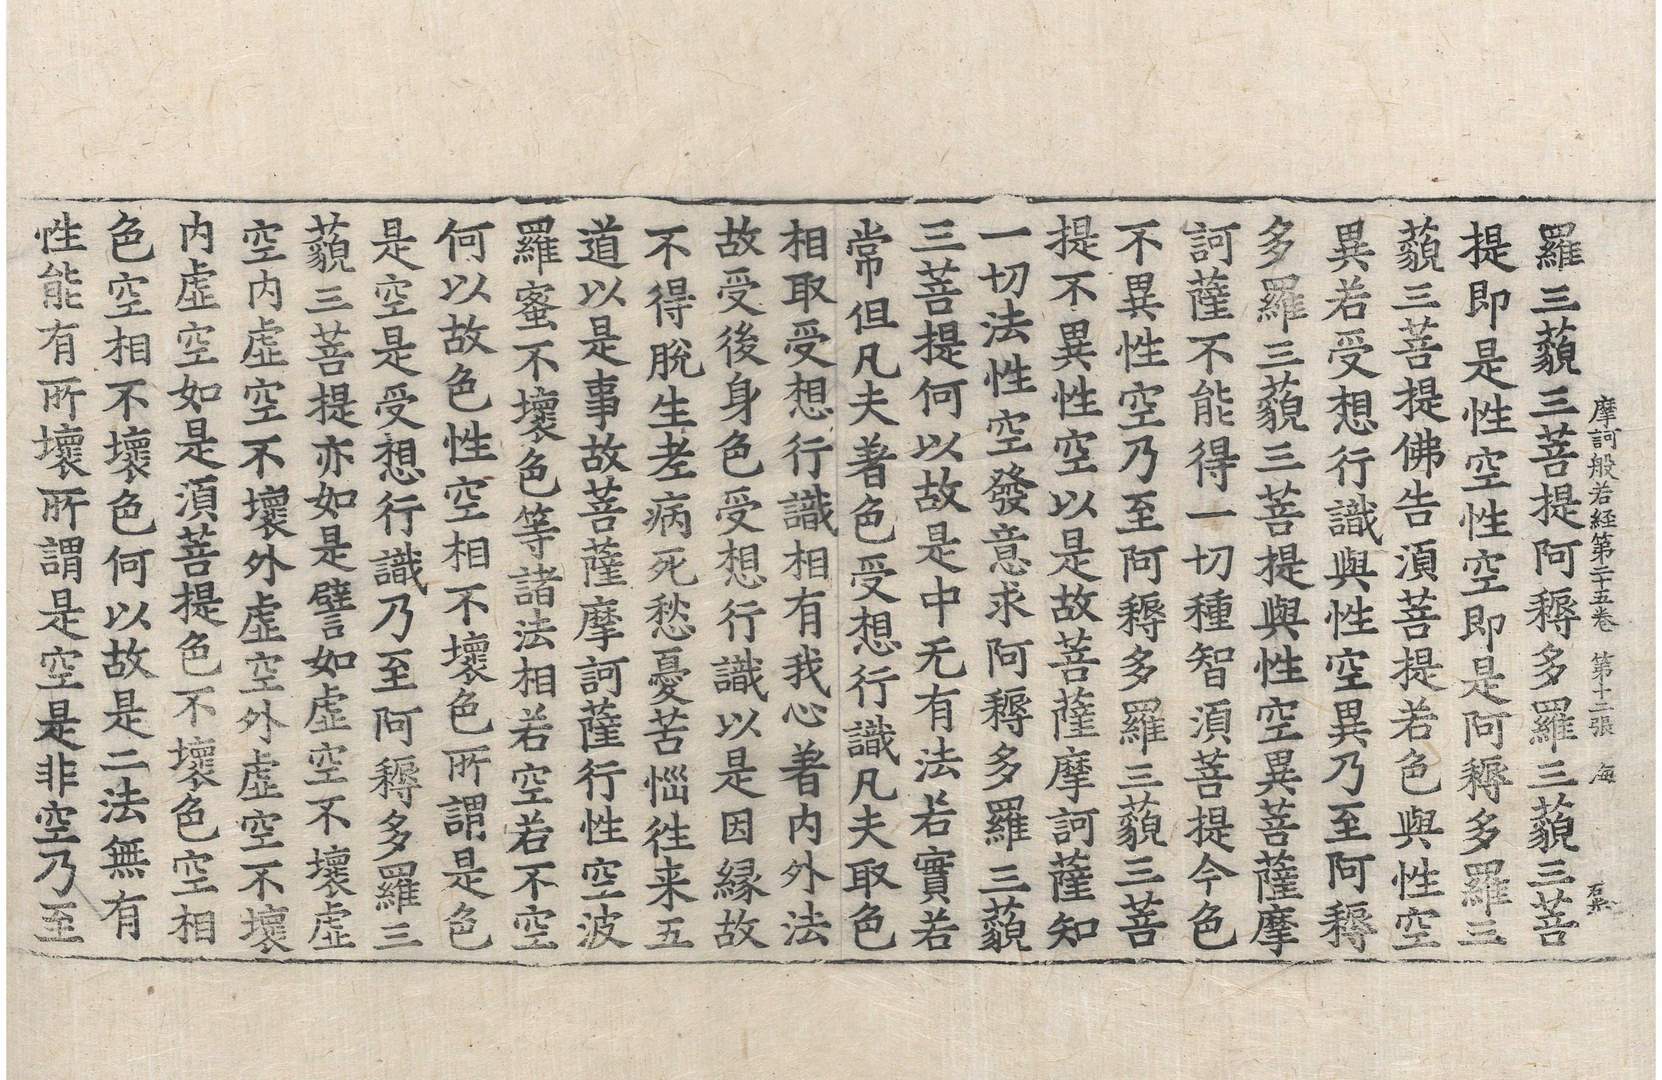 摩訶般若經第二十五卷 第十二張 海
羅三藐三菩提阿耨多羅三藐三菩
提即是性空性空即是阿耨多羅三
藐三菩提佛告湏菩提若色與性空
異若受想行識與性空異乃至阿耨
多羅三藐三菩提與性空異菩薩摩
訶薩不能得一切種智湏菩提今色
不異性空乃至阿耨多羅三藐三菩
提不異性空以是故菩薩摩訶薩知
一切法性空發意求阿耨多羅三藐
三菩提何以故是中无有法若實若
常但凡夫著色受想行識凡夫取色
相取受想行識相有我心著内外法
故受後身色受想行識以是因緣故
不得脫生老病死愁憂苦惱往来五
道以是事故菩薩摩訶薩行性空波
羅蜜不壞色等諸法相若空若不空
何以故色性空相不壞色所謂是色
是空是受想行識乃至阿耨多羅三
藐三菩提亦如是譬如虛空不壞虛
空内虛空不壞外虛空外虛空不壞
内虛空如是湏菩提色不壞色空相
色空相不壞色何以故是二法無有
性能有所壞所謂是空是非空乃至